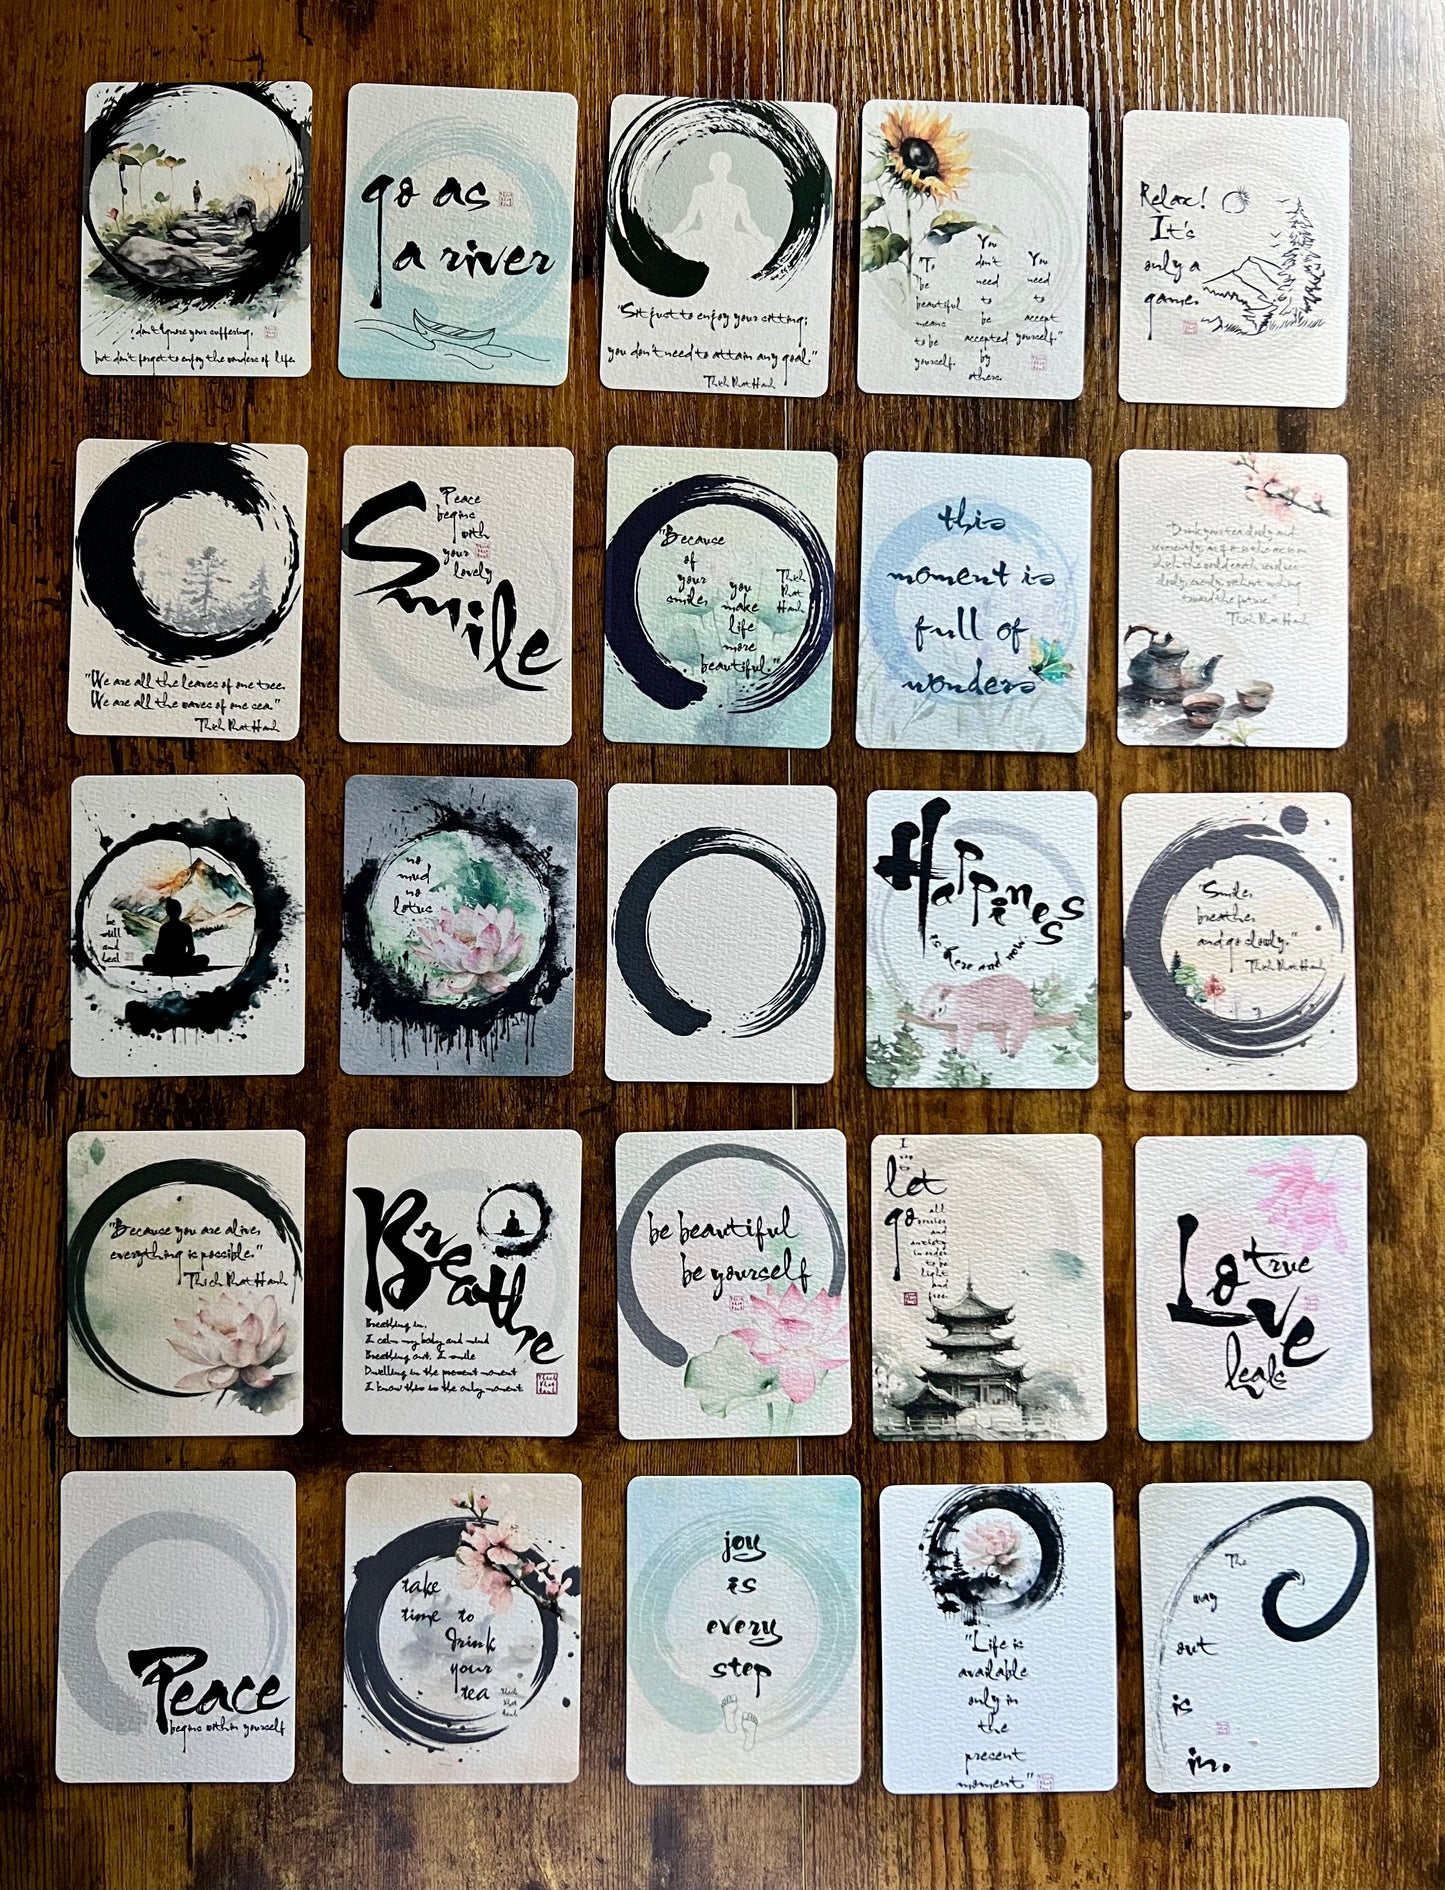 don't ignore your suffering,
but don't forget to enjoy the wonders of life.
go as
a river
"Sit just to enjoy your sitting;
you don't need to attain any goal."
Thich Nhat Hanh
"To
be
beautiful
means
to be
yourself.
You
don't
need
to
be
accepted
by
others.
You
need
to
accept
yourself."
Relax!
It's
only a
game.
"We are all the leaves of one tree.
We are all the waves of one sea."
Thich Nhat Hanh
Peace
begins
with
your
lovely
Smile
"Because
of
your
smile,
you
make
life
more
beautiful."
Thich
Nhat
Hanh
this
moment is
full of
wonders
"Drink your tea slowly and
reverently, as if it is the axis on
which the world earth revolves
slowly, evenly, without rushing
toward the future."
Thich Nhat Hanh
be
still
and
heal
no
mud
no
lotus
Happiness
is here and now
"Smile,
breathe,
and go slowly."
Thich Nhat Hanh
"Because you are alive,
everything is possible."
Thich Nhat Hanh
Breathe
Breathing in,
I calm my body and mind
Breathing out, I smile
Dwelling in the present moment
I know this is the only moment.
Thich
Nhat
Hanh
be beautiful
be yourself
I
let
go
all
worries
and
anxiety
in order
to be
light
and
free.
true
Love
heals
Peace
begins within yourself
take
time to
drink
your
tea
Thich
Nhat
Hanh
joy
is
every
step
"Life is
available
only in
the
present
moment."
The
way
out
is
in.